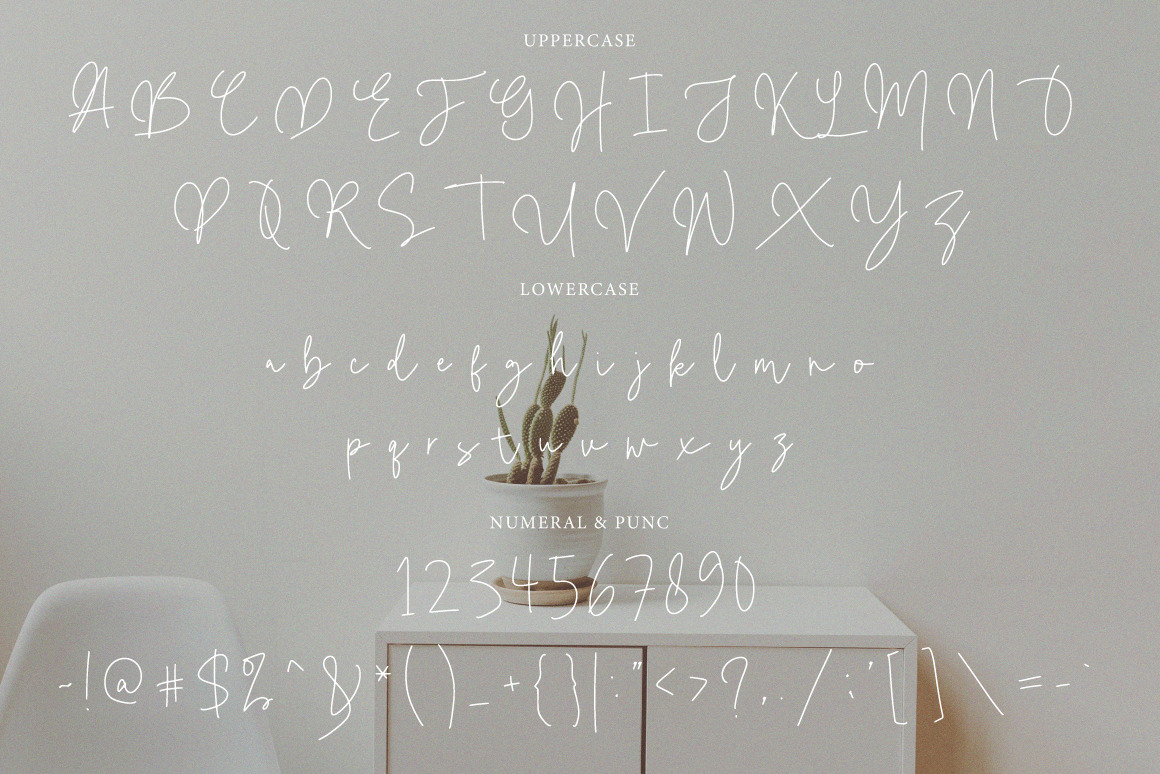 UPPERCASE
A B C D E F G H I J K L M N O
P Q R S T U V W X Y Z
LOWERCASE
a b c d e f g h i j k l m n o
p q r s t u v w x y z
NUMERAL & PUNC
1 2 3 4 5 6 7 8 9 0
~ ! @ # $ % ^ & * ( ) _ + { } | : " < > ? , . / ; ' [ ] \ = - `